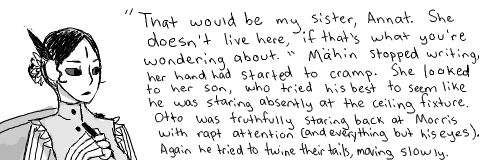 "That would be my sister, Annat. She
doesn't live here, if that's what you're
wondering about." Mähin stopped writing,
her hand had started to cramp. She looked
to her son, who tried his best to seem like
he was staring absently at the ceiling fixture.
Otto was truthfully staring back at Morris
with rapt attention (and everything but his eyes).
Again he tried to twine their tails, moving slowly.